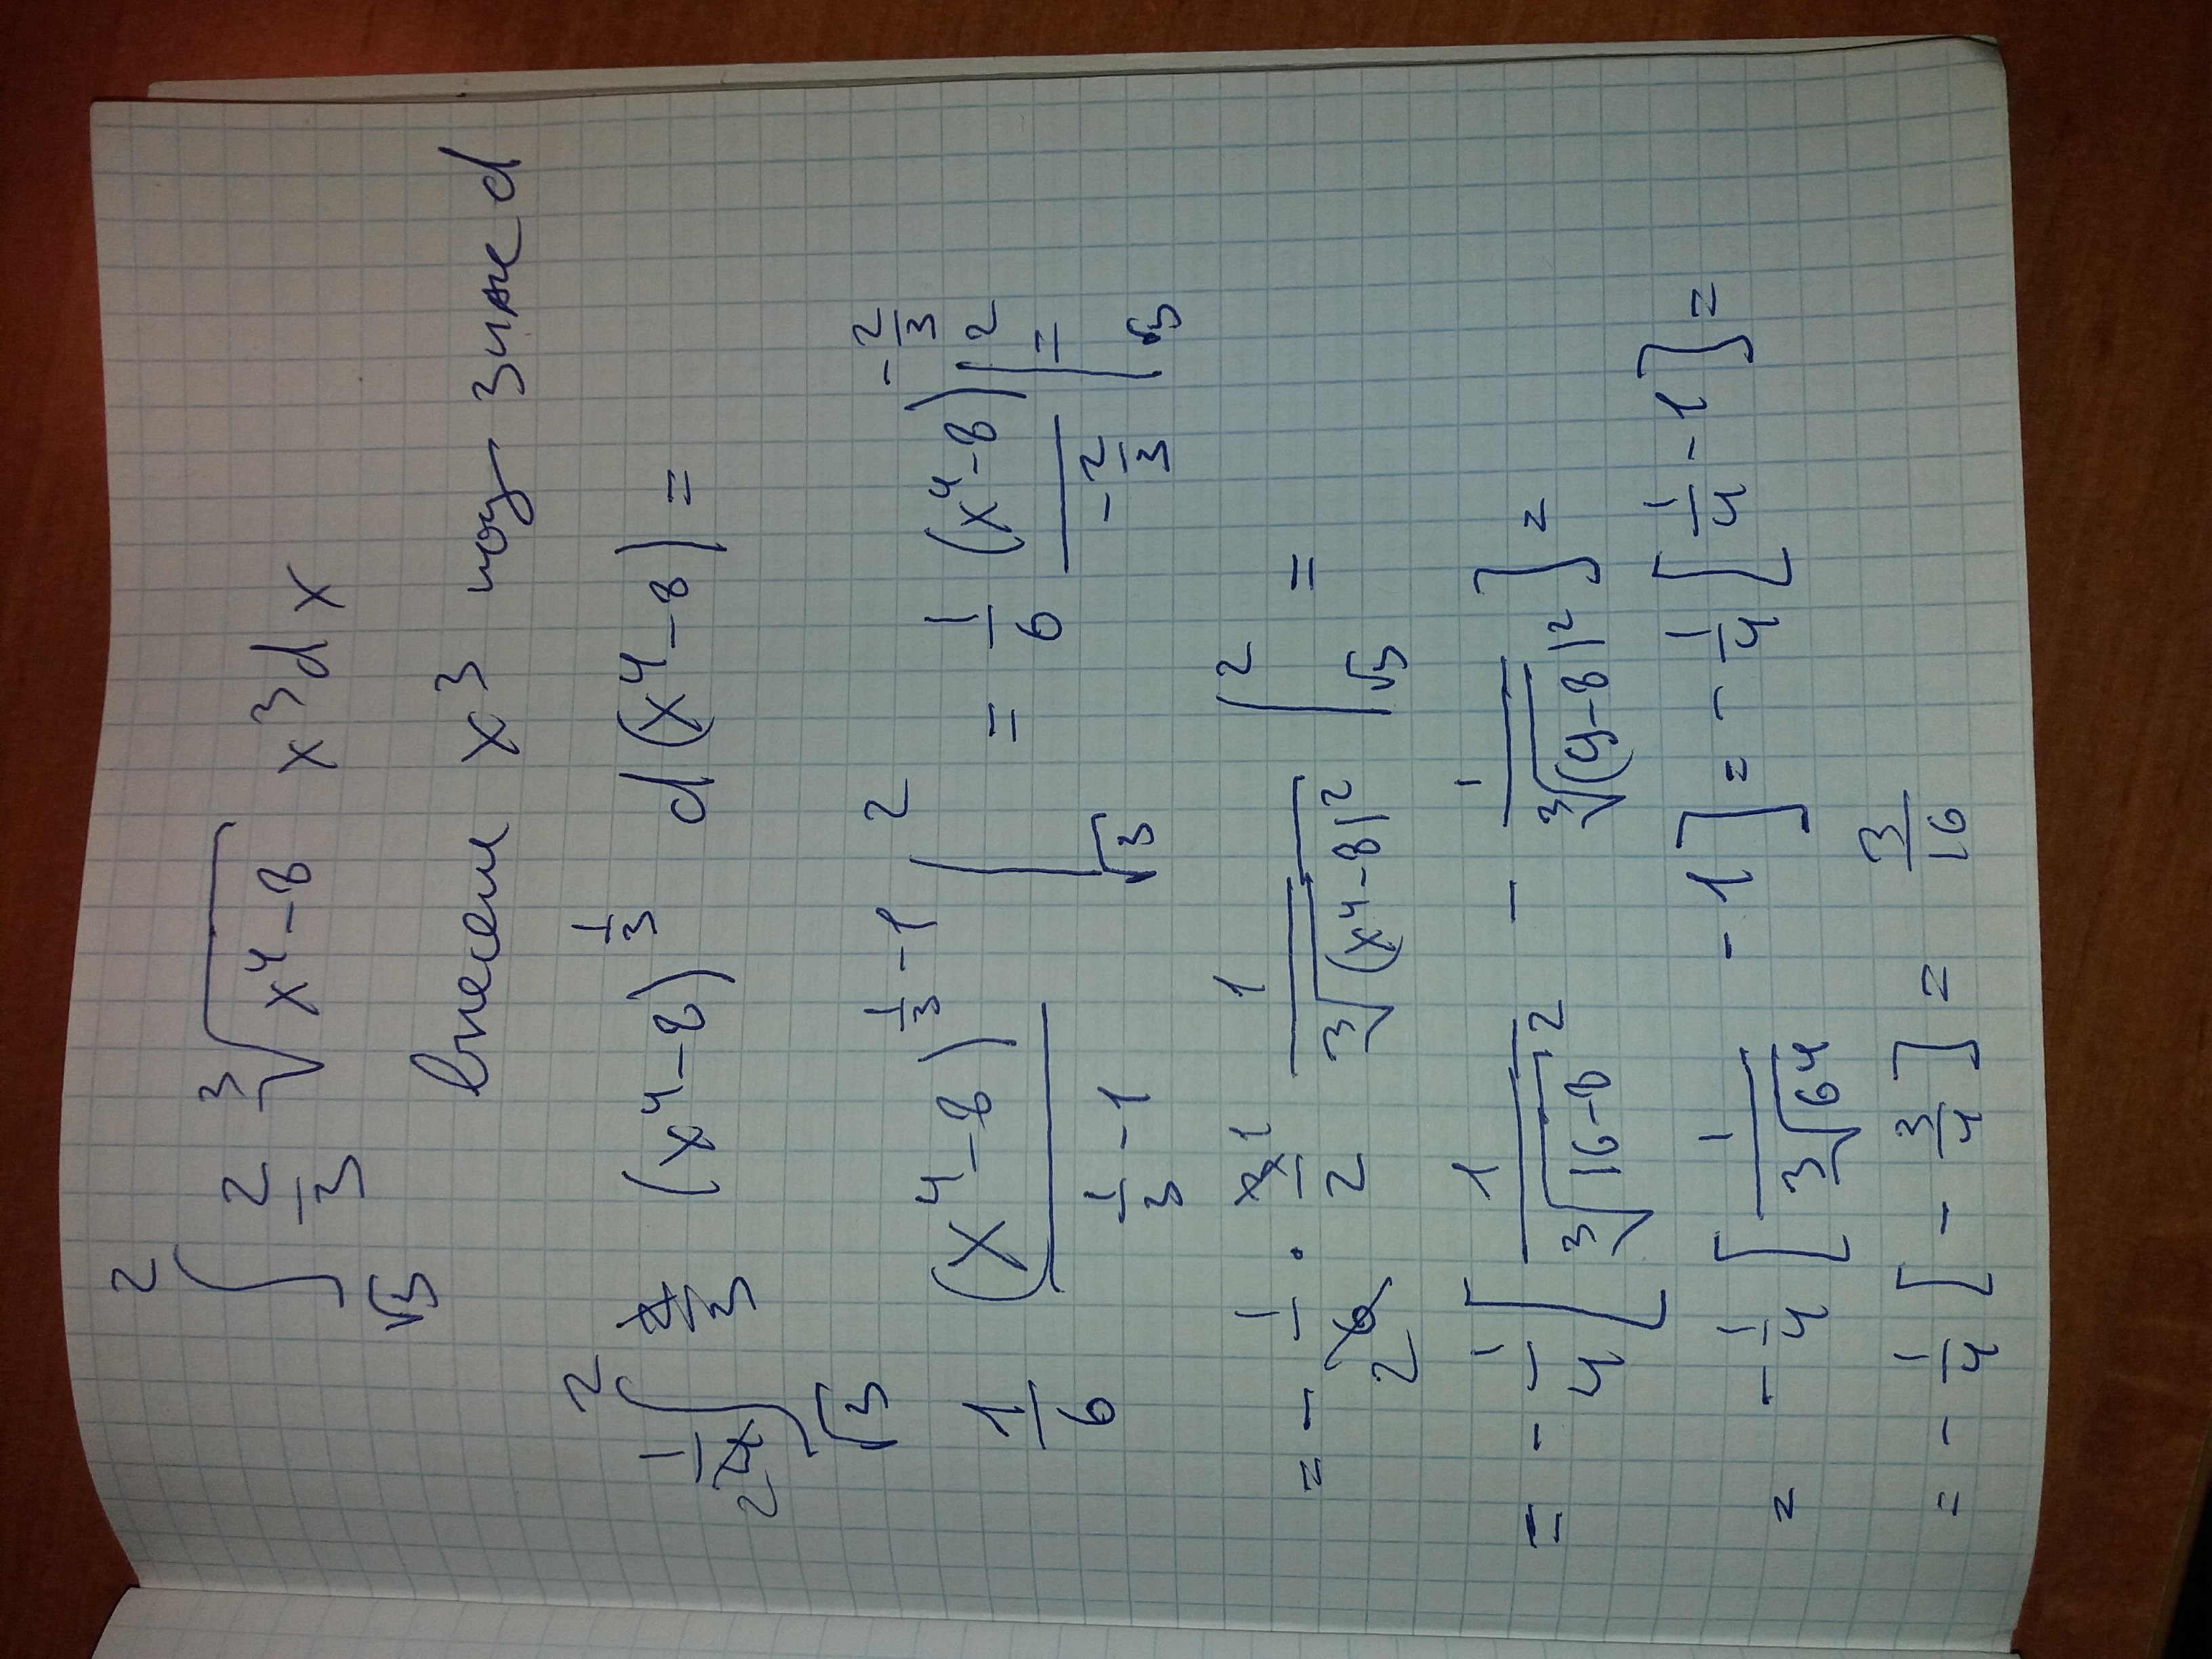 ∫_{√3}^{2} 2/3 ∛(x⁴-8) x³dx
внесем x³ под знак d
1/4 ∫_{√3}^{2} 2/3 (x⁴-8)^{1/3} d(x⁴-8) =
1/6 (x⁴-8)^{1/3-1}/(1/3-1) |_{√3}^{2} = 1/6 (x⁴-8)^{-2/3}/(-2/3) |_{√3}^{2} =
= - 1/6 · 3/2 1/∛(x⁴-8)² |_{√3}^{2} =
= - 1/4 [1/∛(16-8)² - 1/∛(9-8)²] =
= - 1/4 [1/∛64 - 1] = - 1/4 [1/4 - 1] =
= - 1/4 [- 3/4] = 3/16